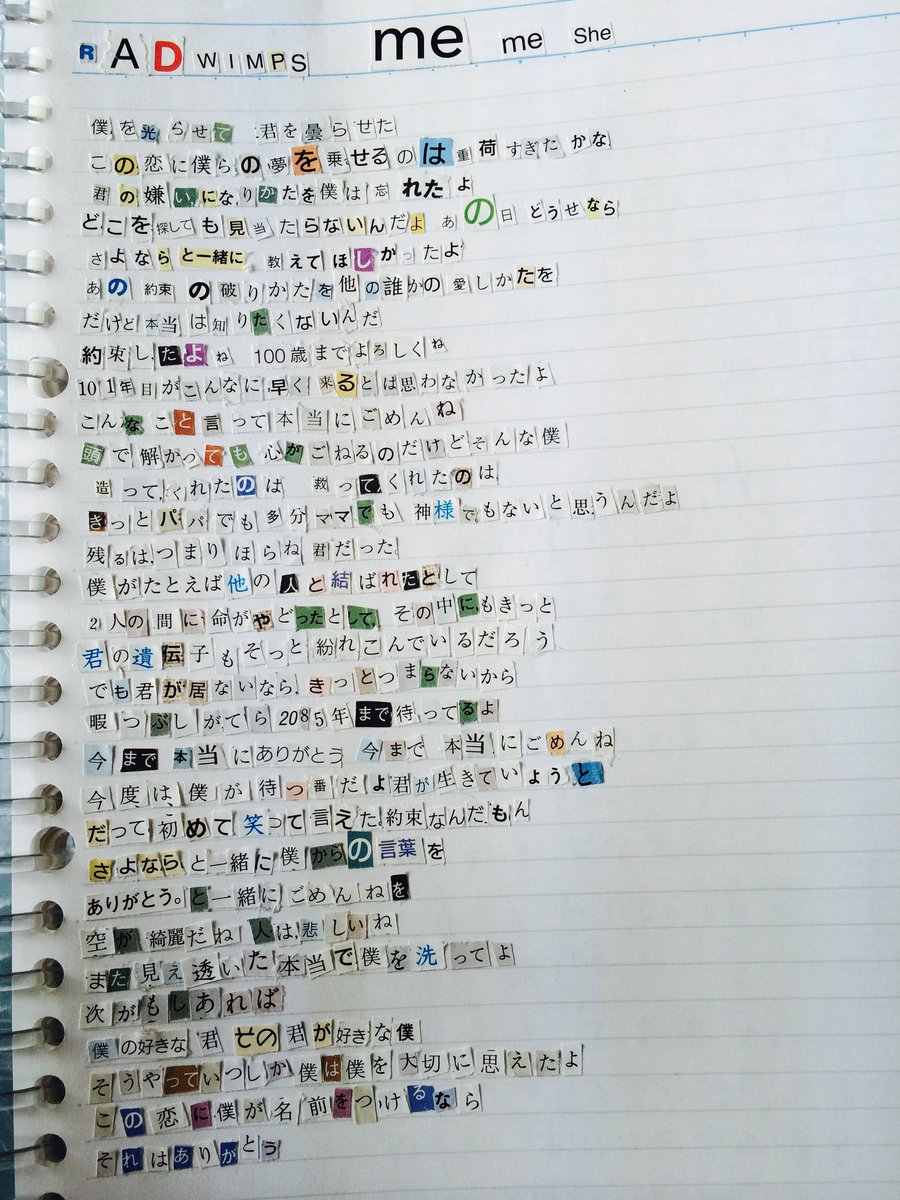 RADWIMPS me me She
僕を光らせて 君を曇らせた
この恋に僕らの夢を乗せるのは重荷すぎたかな
君の嫌いになりかたを僕は忘れたよ
どこを探しても見当たらないんだよ あの日どうせなら
さよならと一緒に 教えてほしかったよ
あの約束の破りかたを他の誰かの愛しかたを
だけど本当は知りたくないんだ
約束したよね 100歳までよろしくね
101年目がこんなに早く来るとは思わなかったよ
こんなこと言って本当にごめんね
頭で解かっても心がごねるのだけどそんな僕
造ってくれたのは 救ってくれたのは
きっとパパでも多分ママでも 神様でもないと思うんだよ
残るはつまりほらね 君だった
僕がたとえば他の人と結ばれたとして
2人の間に命がやどったとして その中にもきっと
君の遺伝子もそっと紛れこんでいるだろう
でも君が居ないなら きっとつまらないから
暇つぶしがてら2085年まで待ってるよ
今まで本当にありがとう 今まで本当にごめんね
今度は僕が待つ番だよ君が生きていようと
だって初めて笑って言えた約束なんだもん
さよならと一緒に僕からの言葉を
ありがとう。と一緒にごめんねを
空が綺麗だね 人は悲しいね
また見え透いた本当で僕を洗ってよ
次がもしあれば
僕の好きな君 その君が好きな僕
そうやっていつしか僕は僕を大切に思えたよ
この恋に僕が名前をつけるなら
それはありがとう